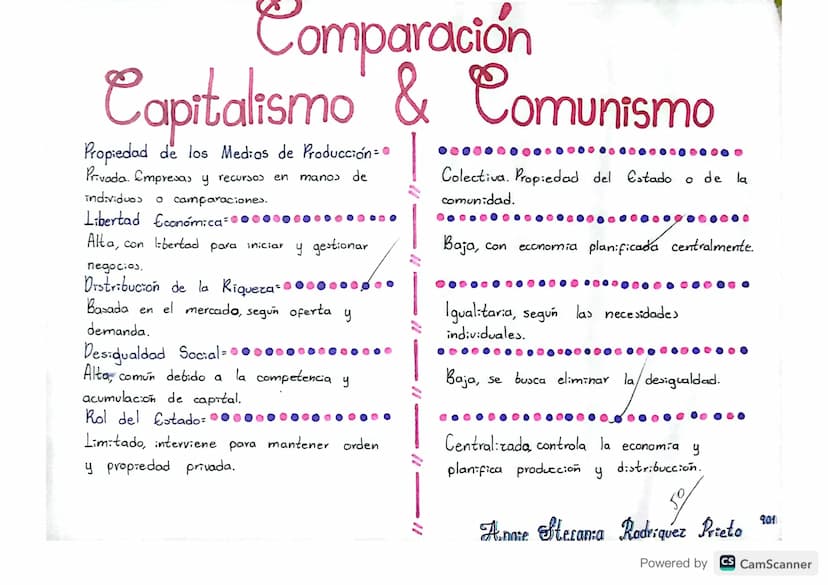 Comparación
Capitalismo & Comunismo
Propiedad de los Medios de Producción=
Privada. Empresas y recursos en manos de
individuos o camparaciones.
Libertad Económica=
Alta, con libertad para iniciar y gestionar
negocios.
Distribucion de la Riqueza=
Basada en el mercado, según oferta y
demanda.
Desigualdad Social=
Alta, común debido a la competencia y
acumulación de capital.
Rol del Estado=
Limitado, interviene para mantener orden
y propiedad privada.
Colectiva. Propiedad del Estado o de la
comunidad.
Baja, con economia planificada centralmente.
Igualitaria, según las necesidades
individuales.
Baja, se busca eliminar la desigualdad.
Centralizada, controla la economia y
planifica produccion y distribuccion.
50
Annie Stefania Rodriguez Prieto 901
Powered by CS CamScanner